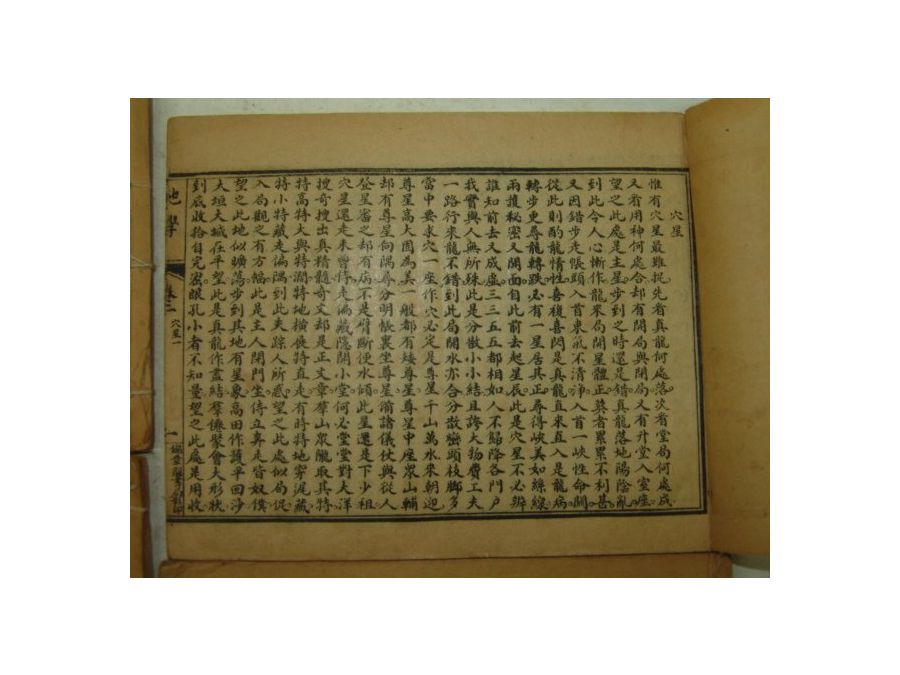 穴星
惟有穴星最難捉先看真龍何處落次看堂局何處成
又看用神何處合却有開局與開局又有升堂入室座
望之此處是主星步到之時還是錯真龍落地陽陰亂
到此今人心慚作龍來局開星體正葬者累累不利甚
又因錯步走帳頭入首束氣不清淨入首一峽性命關
從此則酌龍情性喜複喜閃是真龍直來直入是龍病
轉步更尋龍轉跌必有一星居其正尋得峽美如絲線
兩護秘密又開面自此前去起星辰此是穴星不必辨
誰知前去又成虛三三五五都相如人不歸降各門戶
我實與人無所殊此是分散小小結且誇大物費工夫
一路行來龍不錯到此局開水亦合分散巒頭枝腳多
當中要求穴一座作穴必定是尊星千山萬水來朝迎
尊星高大固為美一般都有矮尊星尊星中座眾山輔
却有尊星向隅尋分明帳裏坐尊星前諸儀仗與從人
登星審之却有病不是臂斷便水傾此星還是下少祖
穴星還走未曾停走偏藏隱開小堂何必堂堂對大洋
搜奇搜出真精髓奇文却是正文章羣山眾隴取其特
特高特大與特濶特地橫展特直走有時特地穿泥藏
特小特藏走偏隅到此夫踪人所惑望之此處似局促
入局觀之有方幅此是主人閉門坐侍立鼻走皆奴僕
望之此地似曠蕩步到其地有星象高田作護平田沙
大垣大城在平望此是真龍作盡結羣僚聚會大形狀
到底收拾自完密眼孔小者不知量望之此處是用收
地學
卷二
穴星一
一